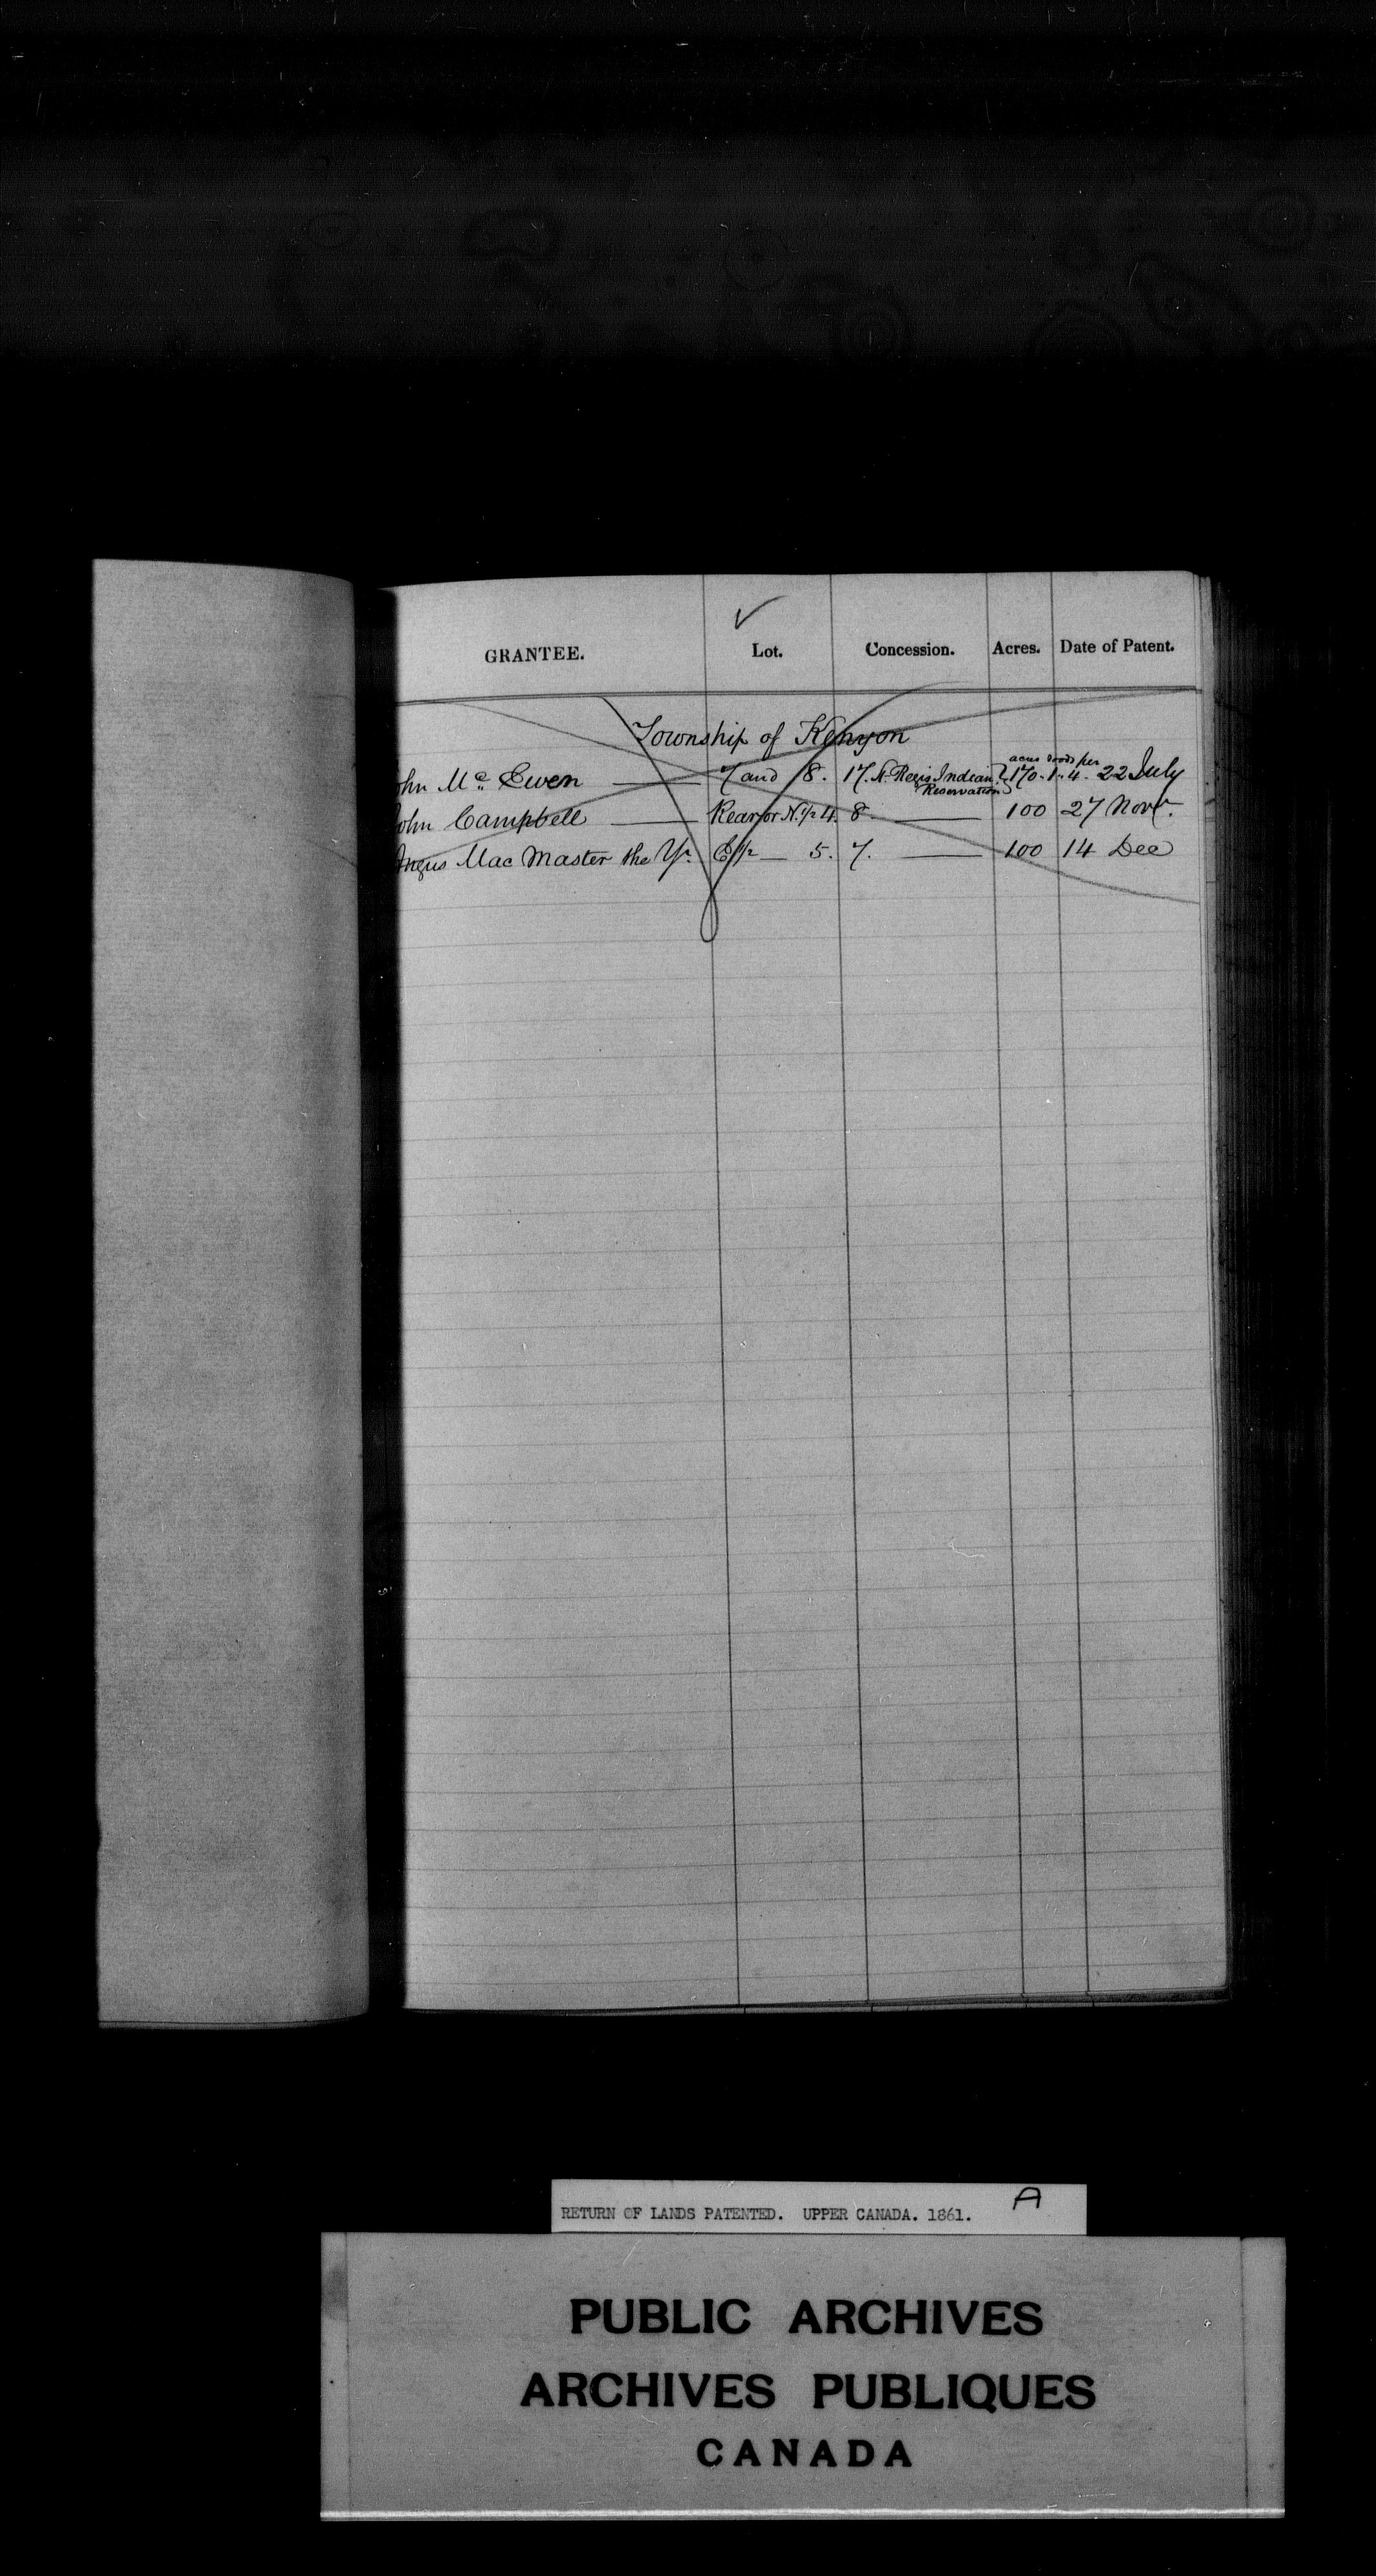 GRANTEE. Lot. Concession. Acres. Date of Patent.
Township of Kenyon
acres roods per
ohn Mc Ewen 7 and 8. 17. St. Regis Indian Reservation 170. 1. 4. 22 July
ohn Campbell Rear or N. 1/2 4. 8. 100 27 Novr.
Angus Mac Master the Yr. E 1/2 5. 7. 100 14 Dec
RETURN OF LANDS PATENTED. UPPER CANADA. 1861. A
PUBLIC ARCHIVES
ARCHIVES PUBLIQUES
CANADA